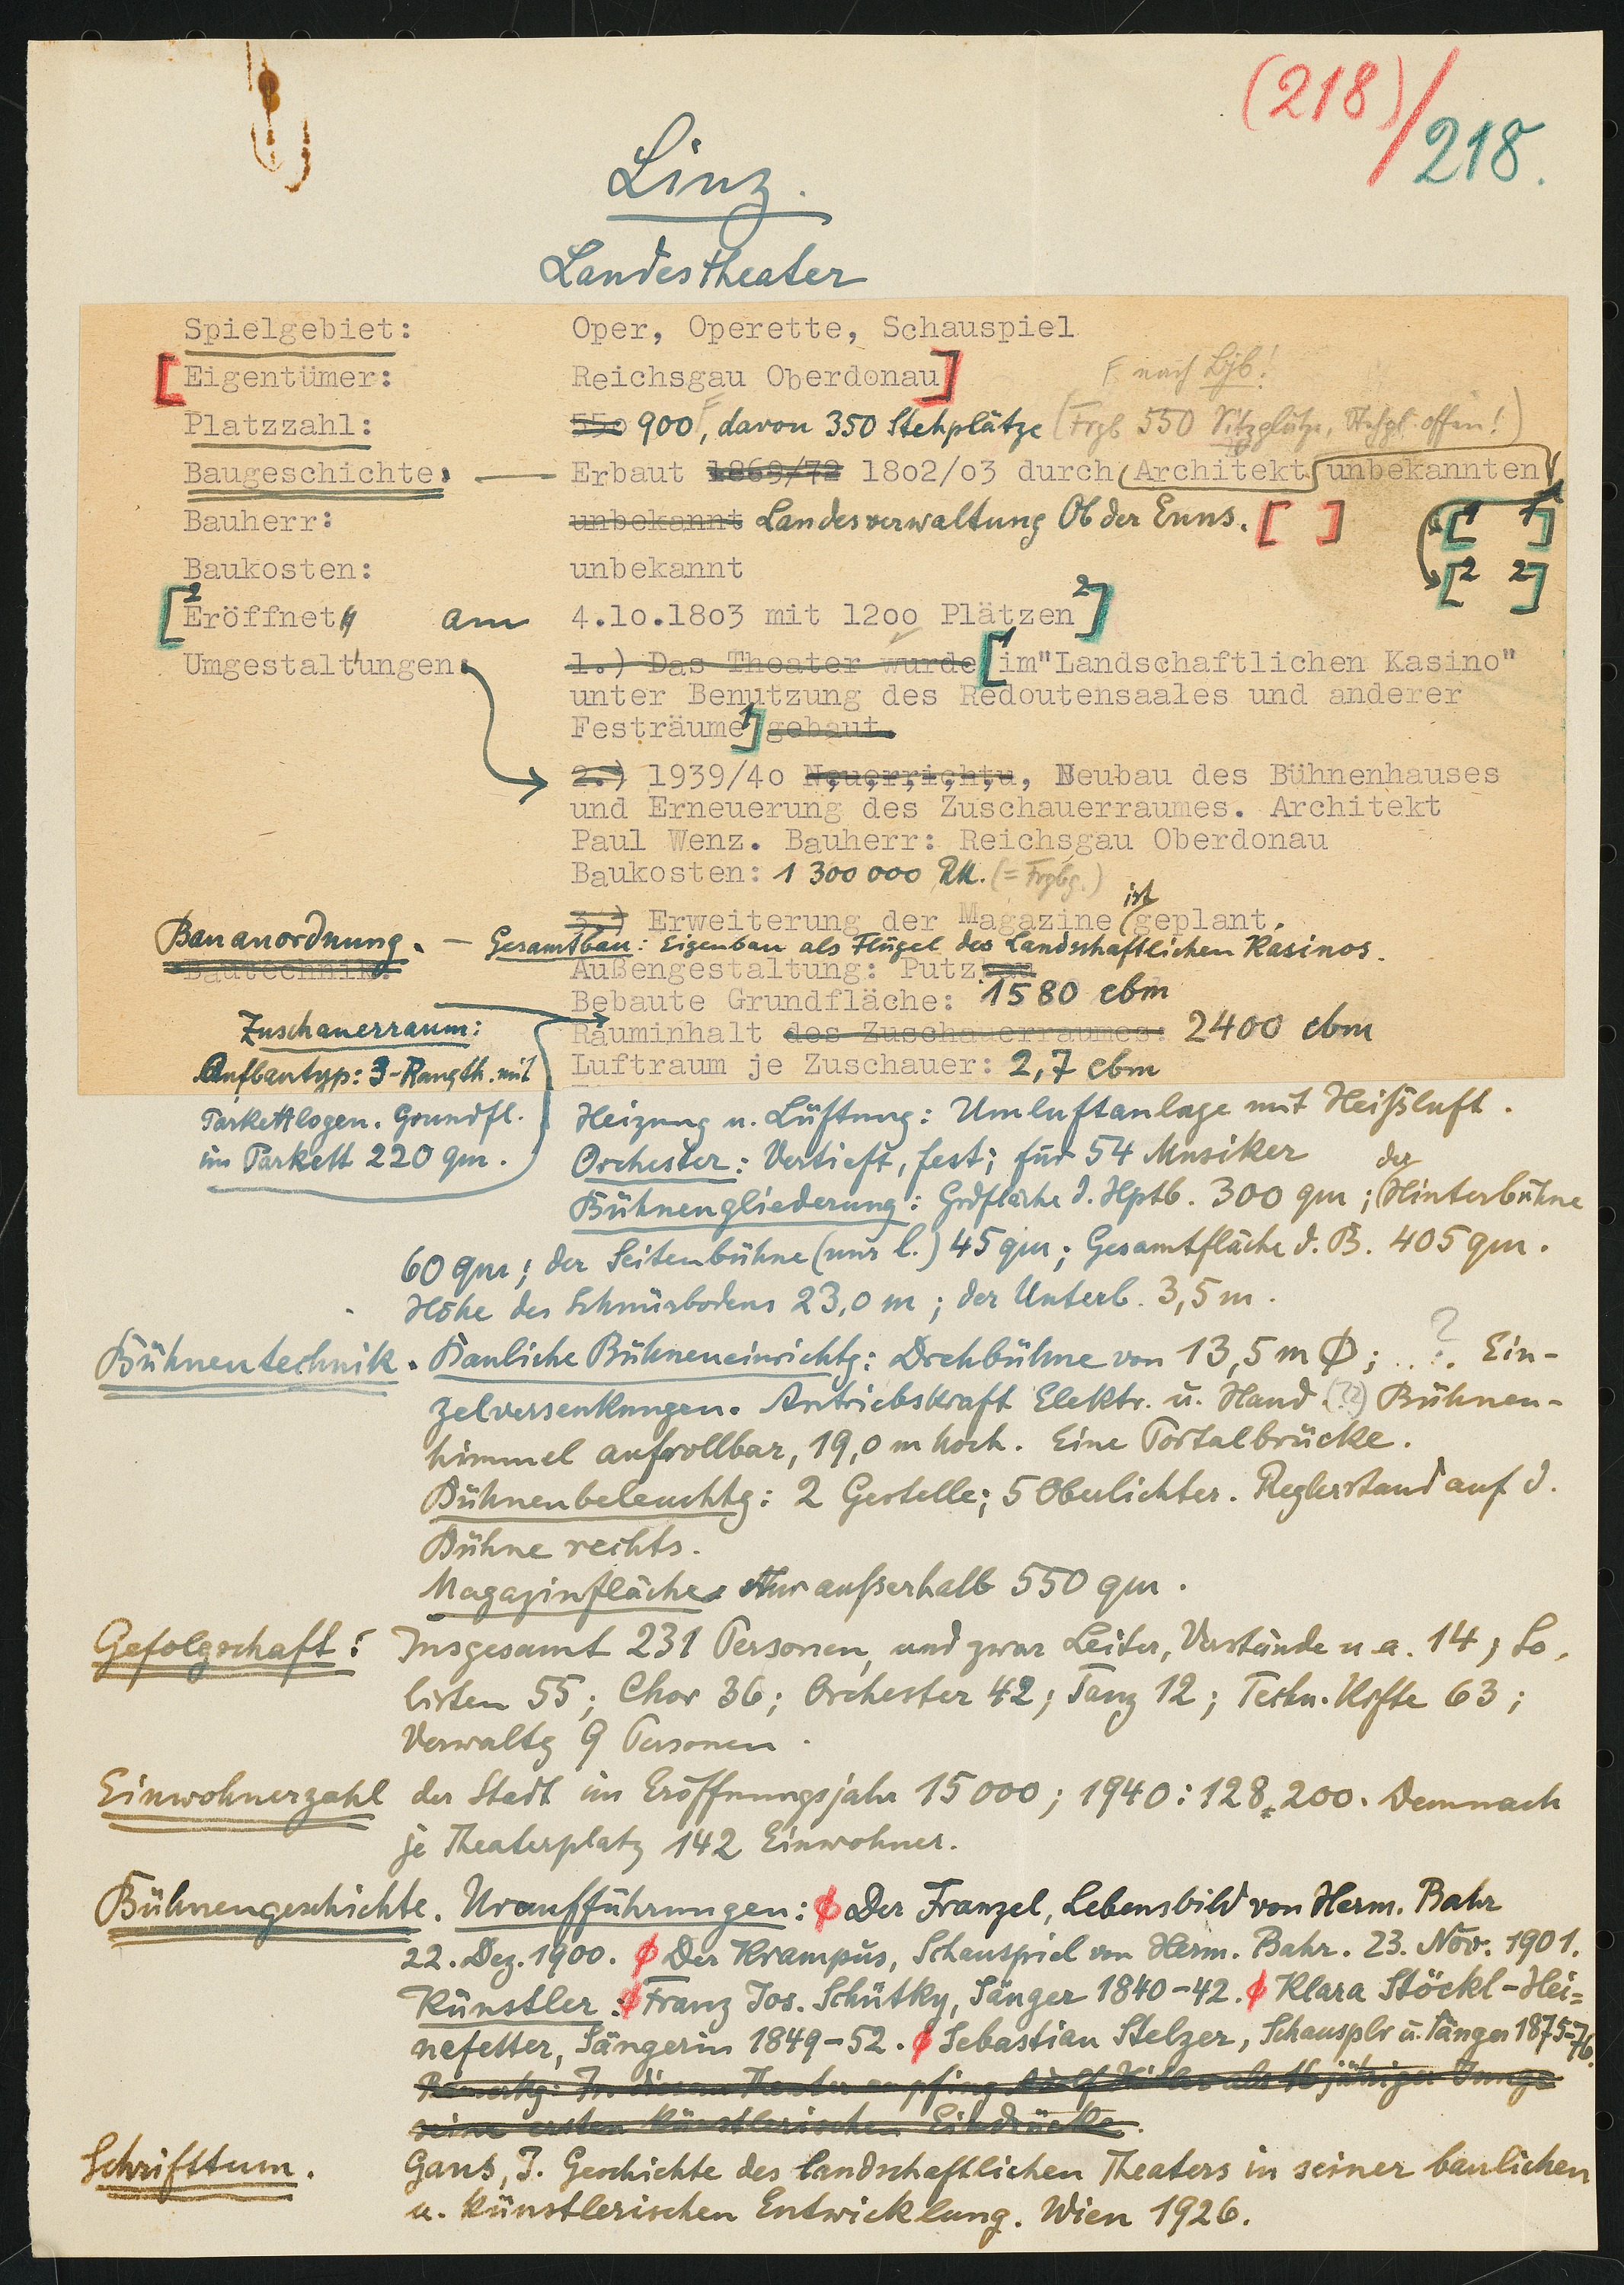 (218)/
218.
Linz.
Landestheater
Spielgebiet: Oper, Operette, Schauspiel
[Eigentümer: Reichsgau Oberdonau] F nach Bjb!
Platzzahl: 550 900 F, davon 350 Stehplätze (Frgb 550 Sitzplätze, Stehpl. offen!)
Baugeschichte. — Erbaut 1869/72 1802/03 durch Architekt unbekannten
Bauherr: unbekannt Landesverwaltung Ob der Enns. [ ] [1 1]
Baukosten: unbekannt [2 2]
[2 Eröffnet am 4.10.1803 mit 1200 Plätzen 2]
Umgestaltungen: 1.) Das Theater wurde [1 im "Landschaftlichen Kasino"
unter Benutzung des Redoutensaales und anderer
Festräume 1] gebaut.
2.) 1939/40 Neuerrichtu, Neubau des Bühnenhauses
und Erneuerung des Zuschauerraumes. Architekt
Paul Wenz. Bauherr: Reichsgau Oberdonau
Baukosten: 1 300 000 RM. (= Frgbg.)
3.) Erweiterung der Magazine ist geplant.
Bauanordnung. — Gesamtbau: Eigenbau als Flügel des Landschaftlichen Kasinos.
Bautechnik: Außengestaltung: Putzbau
Bebaute Grundfläche: 1580 cbm
Zuschauerraum: Rauminhalt des Zuschauerraumes: 2400 cbm
Aufbautyp: 3-Rangth. mit Luftraum je Zuschauer: 2,7 cbm
Parkettlogen. Grundfl. Heizung u. Lüftung: Umluftanlage mit Heißluft.
im Parkett 220 qm. Orchester: Vertieft, fest; für 54 Musiker
Bühnengliederung: Grdfläche d. Hptb. 300 qm; der Hinterbühne
60 qm; der Seitenbühne (nur l.) 45 qm; Gesamtfläche d. B. 405 qm.
Höhe des Schnürbodens 23,0 m; der Unterb. 3,5 m.
Bühnentechnik. Bauliche Bühneneinrichtg: Drehbühne von 13,5 m Ø; ...?. Ein-
zelversenkungen. Antriebskraft Elektr. u. Hand. (??) Bühnen-
himmel aufrollbar, 19,0 m hoch. Eine Portalbrücke.
Bühnenbeleuchtg: 2 Gestelle; 5 Oberlichter. Reglerstand auf d.
Bühne rechts.
Magazinfläche. Nur außerhalb 550 qm.
Gefolgschaft: Insgesamt 231 Personen, und zwar Leiter, Vorstände u. a. 14; So-
listen 55; Chor 36; Orchester 42; Tanz 12; Techn. Kräfte 63;
Verwaltg 9 Personen.
Einwohnerzahl der Stadt im Eröffnungsjahr 15 000; 1940: 128 200. Demnach
je Theaterplatz 142 Einwohner.
Bühnengeschichte. Uraufführungen: ϕ Der Franzel, Lebensbild von Herm. Bahr
22. Dez. 1900. ϕ Der Krampus, Schauspiel von Herm. Bahr. 23. Nov. 1901.
Künstler: ϕ Franz Jos. Schütky, Sänger 1840-42. ϕ Klara Stöckl-Hei=
nefetter, Sängerin 1849-52. ϕ Sebastian Stelzer, Schausplr u. Sänger 1875-76.
Bemerkg: In diesem Theater empfing Adolf Hitler als 16 jähriger Junge
seine ersten künstlerischen Eindrücke.
Schrifttum. Gans, J. Geschichte des landschaftlichen Theaters in seiner baulichen
u. künstlerischen Entwicklung. Wien 1926.